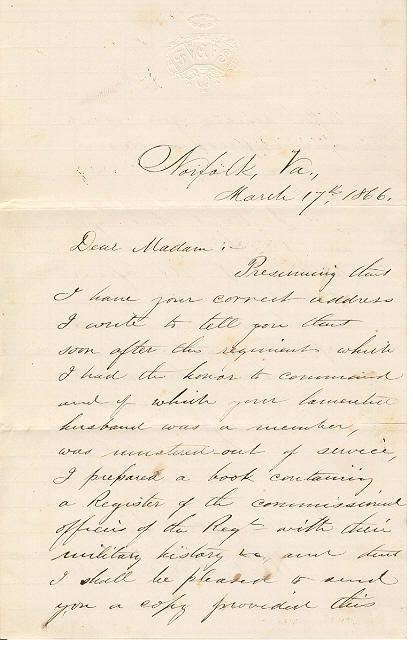 Norfolk, Va.,
March 17th, 1866.
Dear Madam :-
Presuming that
I have your correct address
I write to tell you that
soon after the regiment which
I had the honor to command
and of which your lamented
husband was a member,
was mustered out of service,
I prepared a book containing
a Register of the commissioned
officers of the Regt with their
military history &c, and that
I shall be pleased to send
you a copy provided this